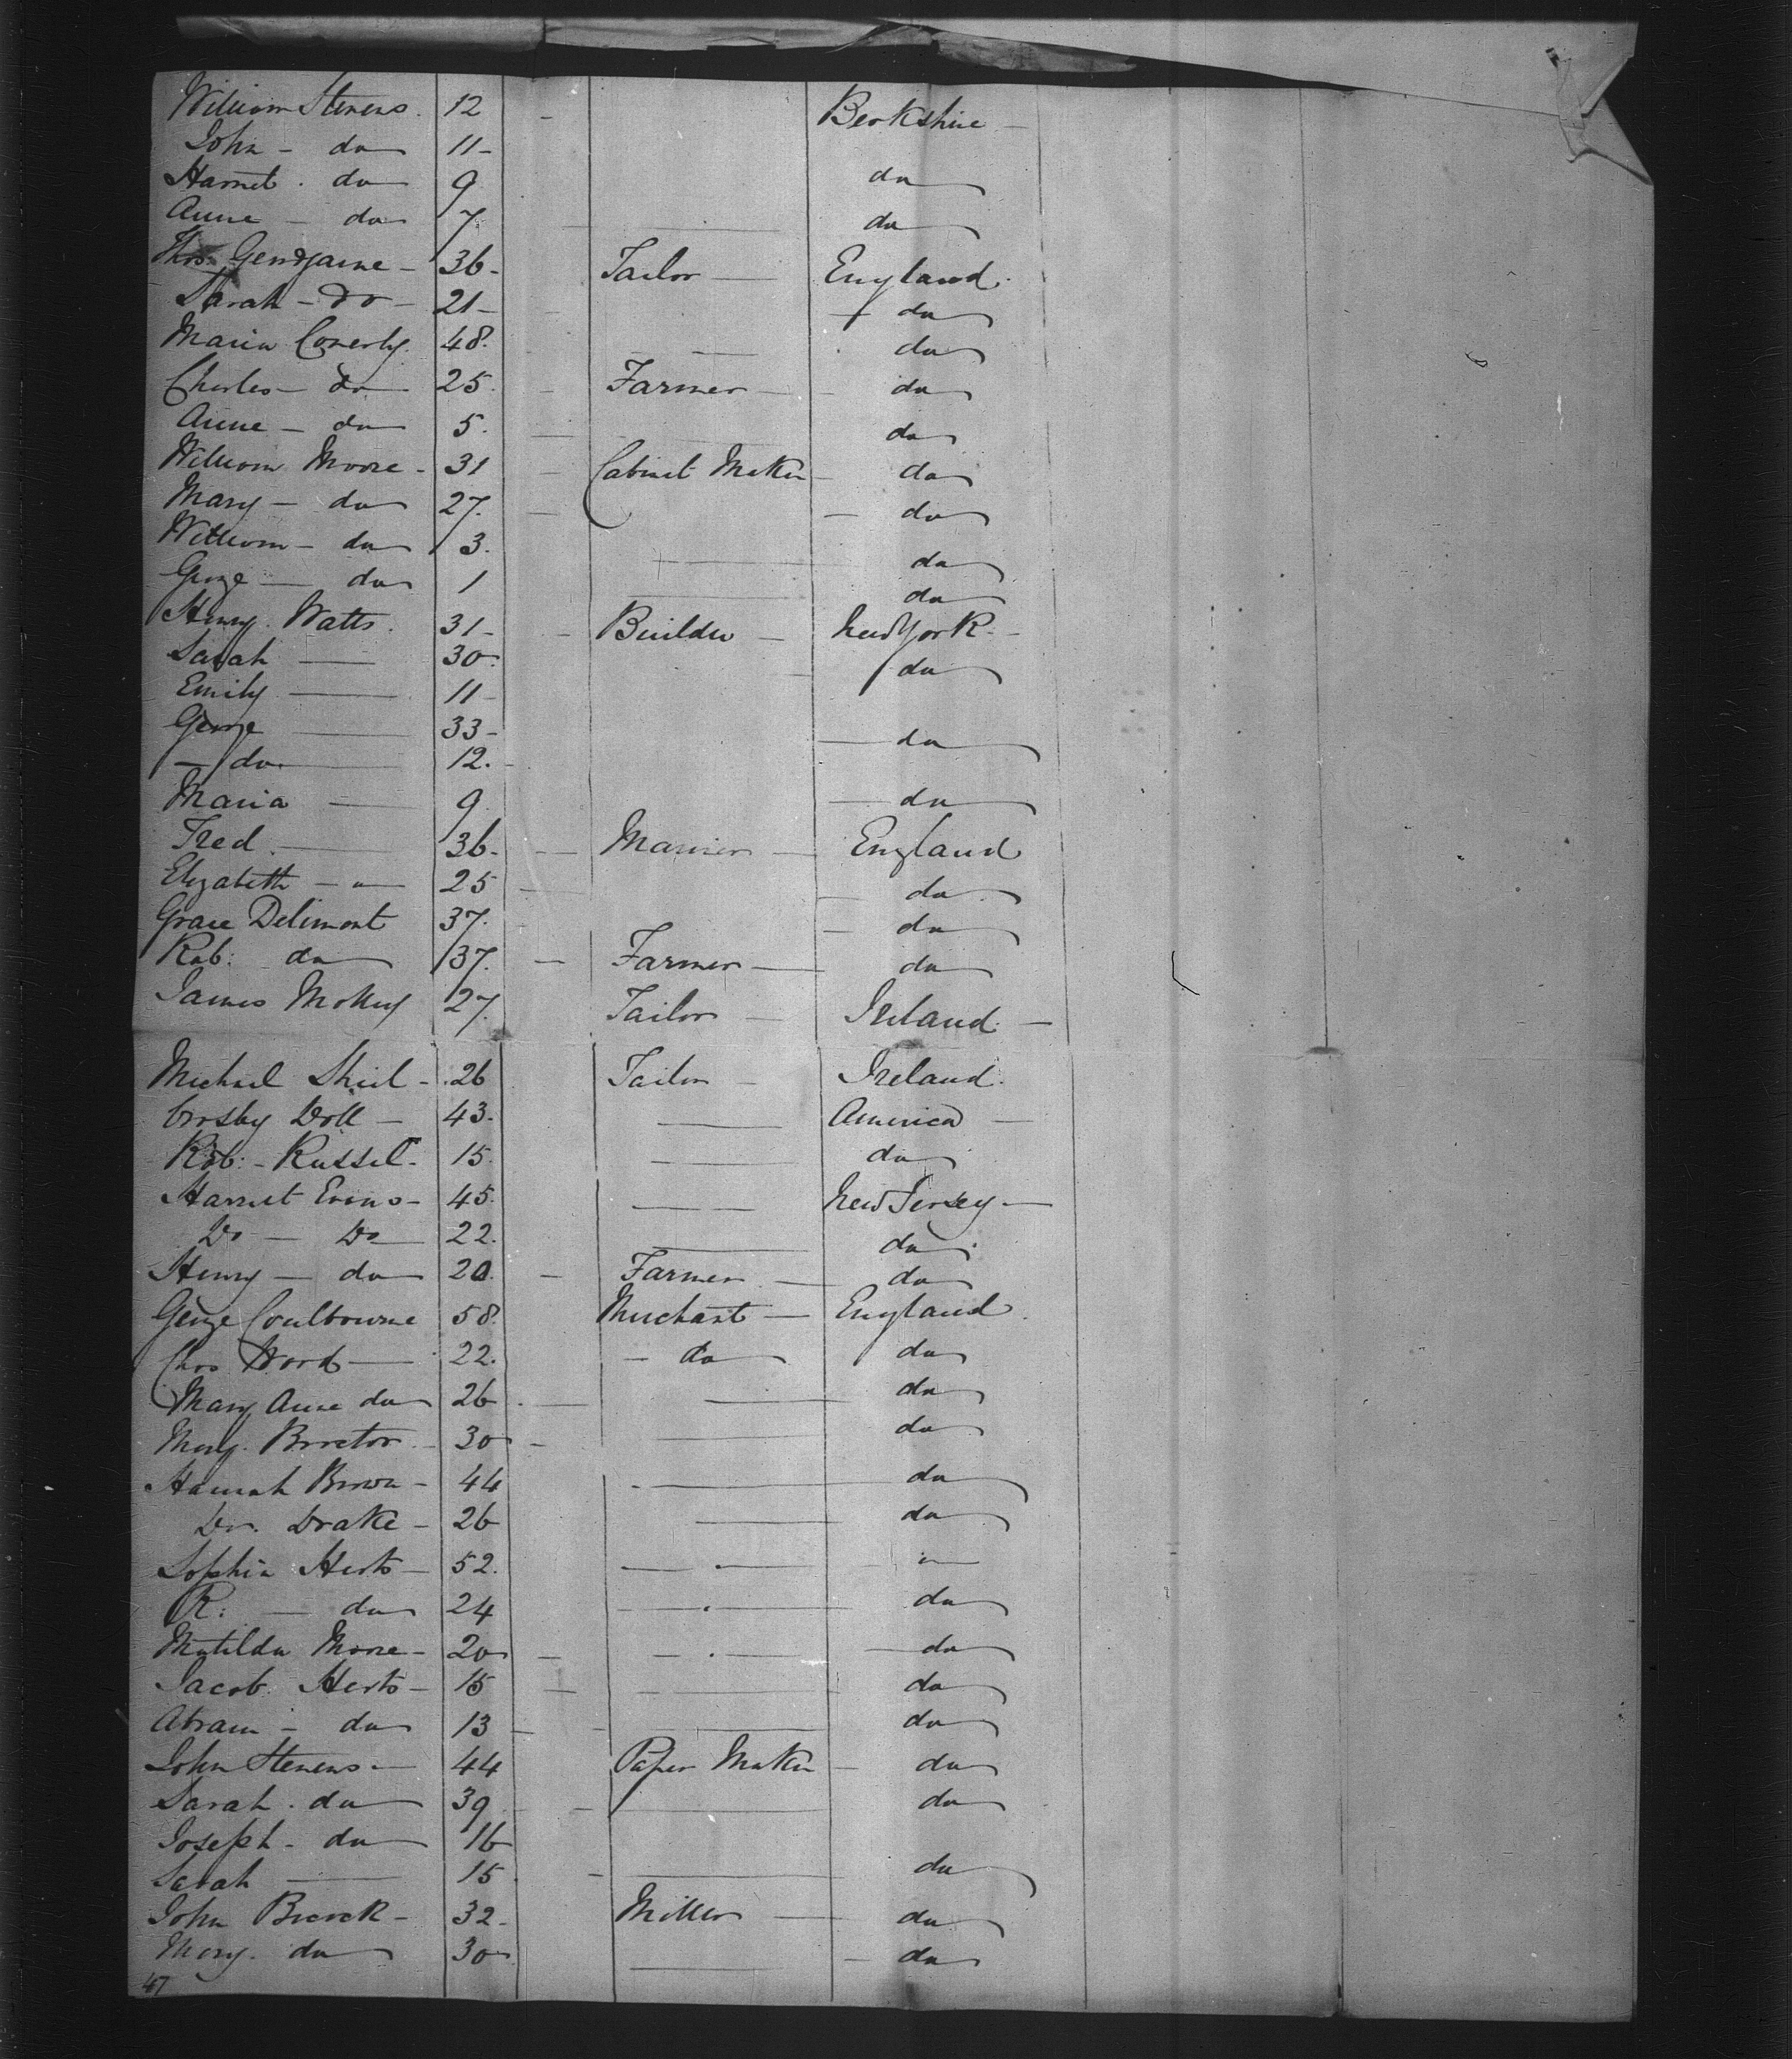 William Stevens. 12 - Berkshire -
John - do 11 -
Harriet. do 9 do
Anne - do 7. do
Thos. 36 - Tailor - England.
Sarah - Do - 21 - do
Maria Conerly. 48. do
Charles - do 25. - Farmer - do
Anne - do 5. do
William Moore - 31 - Cabinet Maker - do
Mary - do 27. - do
William - do 3. do
George - do 1 do
Henry. Watts. 31 - - Builder - New York -
Sarah — 30. do
Emily — 11 -
George — 33 - — do
- do — 12. -
Maria — 9 — do
Fred. — 36 - - Mariner - England
Elizabeth - " - 25 - do.
Grace Delimont 37. - do
Rob: do 37. - Farmer - do
James 27. Tailor - Ireland. -
Michael Shiel - 26 Tailor - Ireland.
Crosby Doll - 43. — America -
Rob: - Russel - 15. — do
Harriet Evins - 45. — New Jersey -
Do - Do 22. — do
Henry - do 20. - Farmer - do
George Coulbourne 58. Merchant - England.
Chas Ward - 22. - do do
Mary Anne do 26 — do
Mary. Brocton - 30 - — do
Hannah Brown - 44 — do
Dr. Drake - 26 — do
Sophia Herts - 52. — "
R: - do 24 — do
Matilda Moore - 20 - — do
Jacob. Herts - 15 — do
Abram - do 13 - — do
John Stevens - 44 Paper Maker - do
Sarah. do 39 - — do
Joseph - do 16
Sarah — 15 - — do
John 32 - Miller - do
Mary. do 30 — - do
47